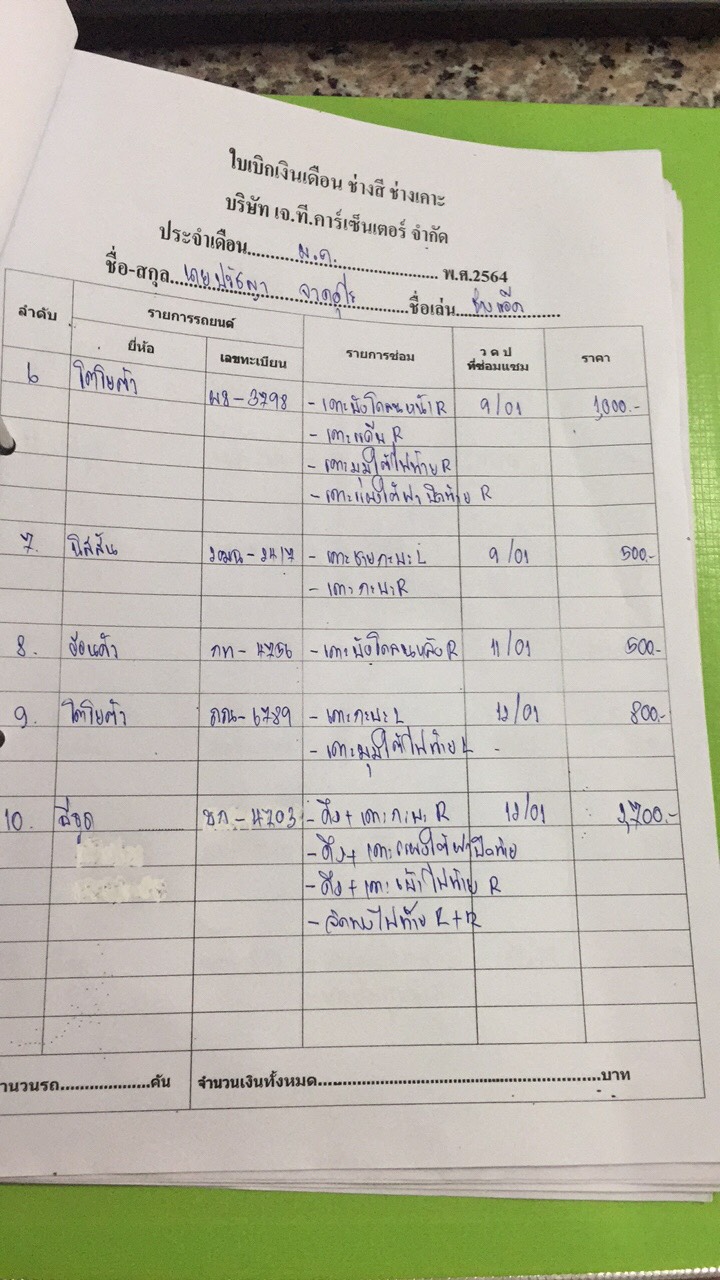 ใบเบิกเงินเดือน ช่างสี ช่างเคาะ
บริษัท เจ.ที.คาร์เซ็นเตอร์ จำกัด
ประจำเดือน ม.ค. พ.ศ.2564
ชื่อ-สกุล นายปรัชญา ชื่อเล่น ช่างแอ๊ด
ลำดับ รายการรถยนต์ รายการซ่อม ว ด ป ที่ซ่อมแซม ราคา
ยี่ห้อ เลขทะเบียน
6 โตโยต้า 3798 - เคาะบังโคลนหน้า R 9/01 1,000.-
- เคาะแก้ม R
- เคาะมุมใต้ไฟท้าย R
- เคาะแผงใต้ฝาปิดท้าย R
7. นิสสัน - เคาะชายกะบะ L 9/01 500.-
- เคาะกะบะ R
8. ฮอนด้า กท - 4756 - เคาะบังโคลนหลัง R 11/01 500.-
9. โตโยต้า ภณ - 6789 - เคาะกะบะ L 12/01 800.-
- เคาะมุมใต้ไฟท้าย L
10. อีซูซุ ชก - 4703 - ดึง + เคาะกะบะ R 12/01 2,700.-
- ดึง + เคาะแผงใต้ฝาปิดท้าย
- ดึง + เคาะเบ้าไฟท้าย R
- จัดทรงไฟท้าย L+R
านวนรถ คัน จำนวนเงินทั้งหมด บาท